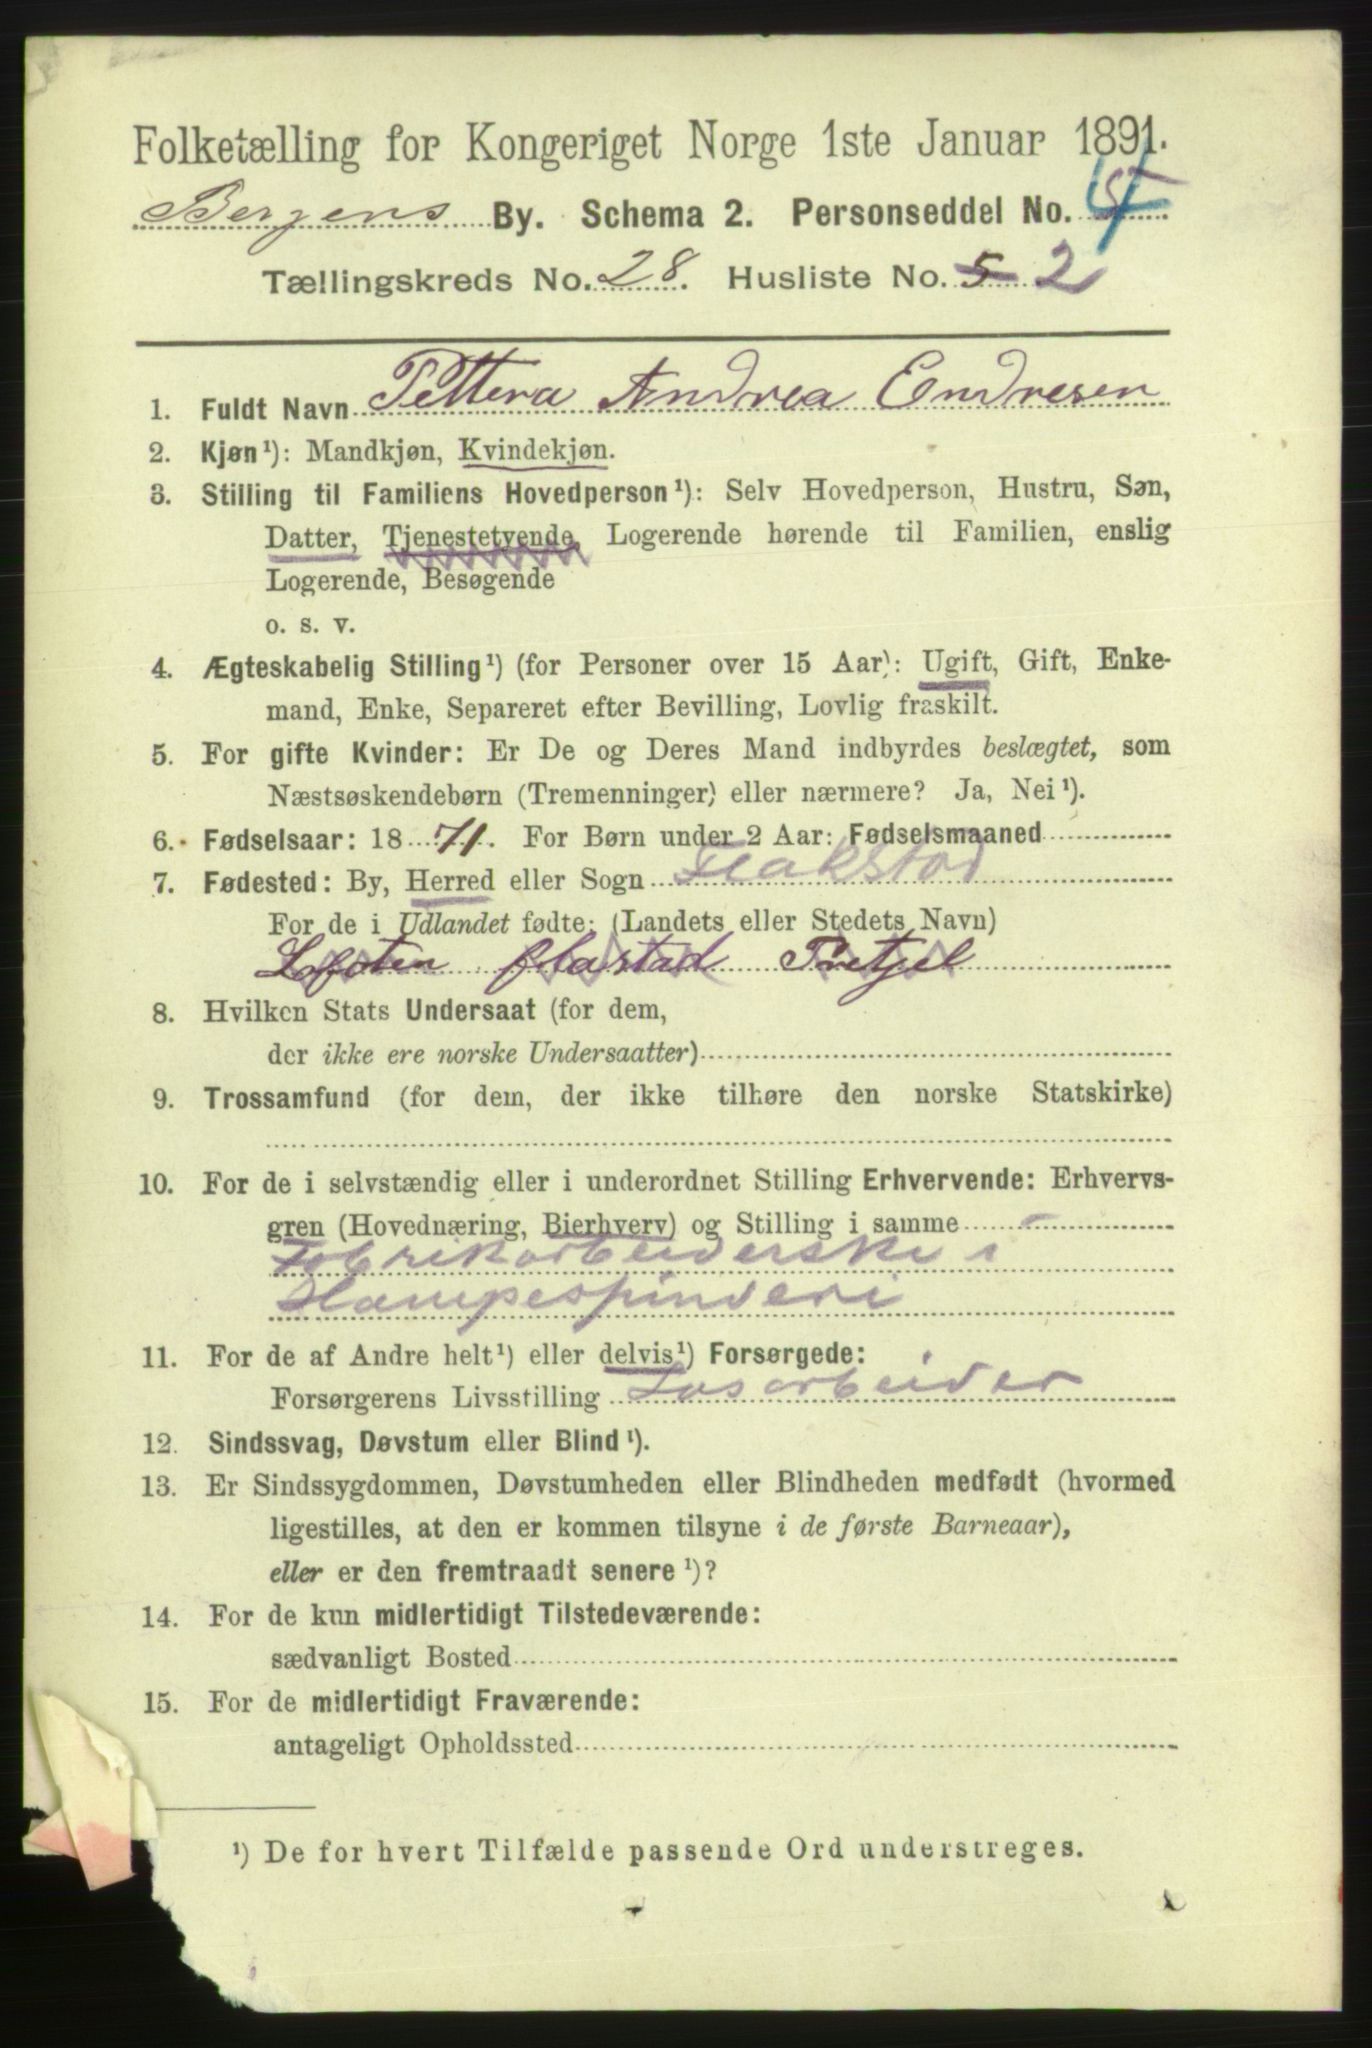 Folketælling for Kongeriget Norge 1ste Januar 1891.
Bergens By. Schema 2. Personseddel No. 4
Tællingskreds No. 28. Husliste No. 5 2
1. Fuldt Navn Pettera Andrea Endresen
2. Kjøn¹): Mandkjøn, Kvindekjøn.
3. Stilling til Familiens Hovedperson¹): Selv Hovedperson, Hustru, Søn,
Datter, Tjenestetyende, Logerende hørende til Familien, enslig
Logerende, Besøgende
o. s. v.
4. Ægteskabelig Stilling¹) (for Personer over 15 Aar): Ugift, Gift, Enke-
mand, Enke, Separeret efter Bevilling, Lovlig fraskilt.
5. For gifte Kvinder: Er De og Deres Mand indbyrdes beslægtet, som
Næstsøskendebørn (Tremenninger) eller nærmere? Ja, Nei¹).
6. Fødselsaar: 1871. For Børn under 2 Aar: Fødselsmaaned
7. Fødested: By, Herred eller Sogn Flakstad
For de i Udlandet fødte: (Landets eller Stedets Navn)
Lofoten flastad
8. Hvilken Stats Undersaat (for dem,
der ikke ere norske Undersaatter)
9. Trossamfund (for dem, der ikke tilhøre den norske Statskirke)
10. For de i selvstændig eller i underordnet Stilling Erhvervende: Erhvervs-
gren (Hovednæring, Bierhverv) og Stilling i samme -
Fabrikarbeiderske i
Hampespinderi
11. For de af Andre helt¹) eller delvis¹) Forsørgede:
Forsørgerens Livsstilling Løsarbeider
12. Sindssvag, Døvstum eller Blind¹).
13. Er Sindssygdommen, Døvstumheden eller Blindheden medfødt (hvormed
ligestilles, at den er kommen tilsyne i de første Barneaar),
eller er den fremtraadt senere¹)?
14. For de kun midlertidigt Tilstedeværende:
sædvanligt Bosted
15. For de midlertidigt Fraværende:
antageligt Opholdssted
¹) De for hvert Tilfælde passende Ord understreges.